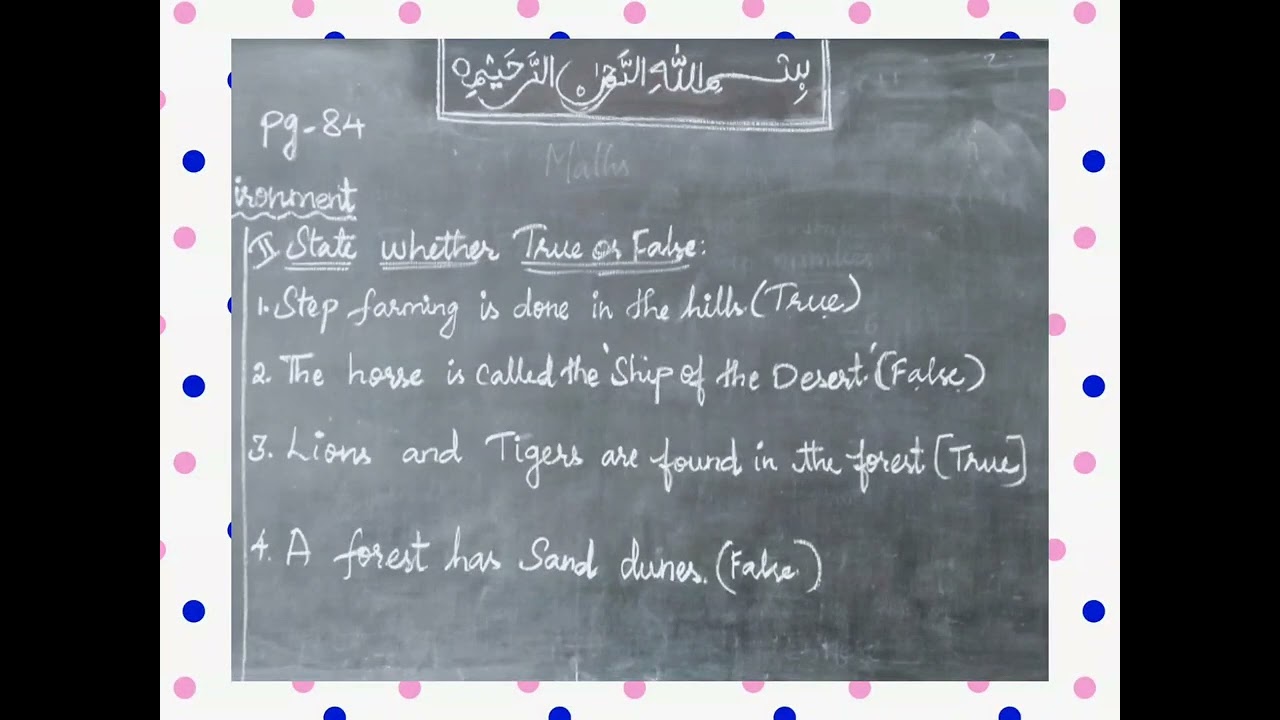 بسم الله الرحمن الرحيم
Pg-84
Maths
ironment
II State whether True or False:
1. Step farming is done in the hills (True)
2. The horse is called the 'Ship of the Desert.' (False)
3. Lions and Tigers are found in the forest [True]
4. A forest has Sand dunes. (False)